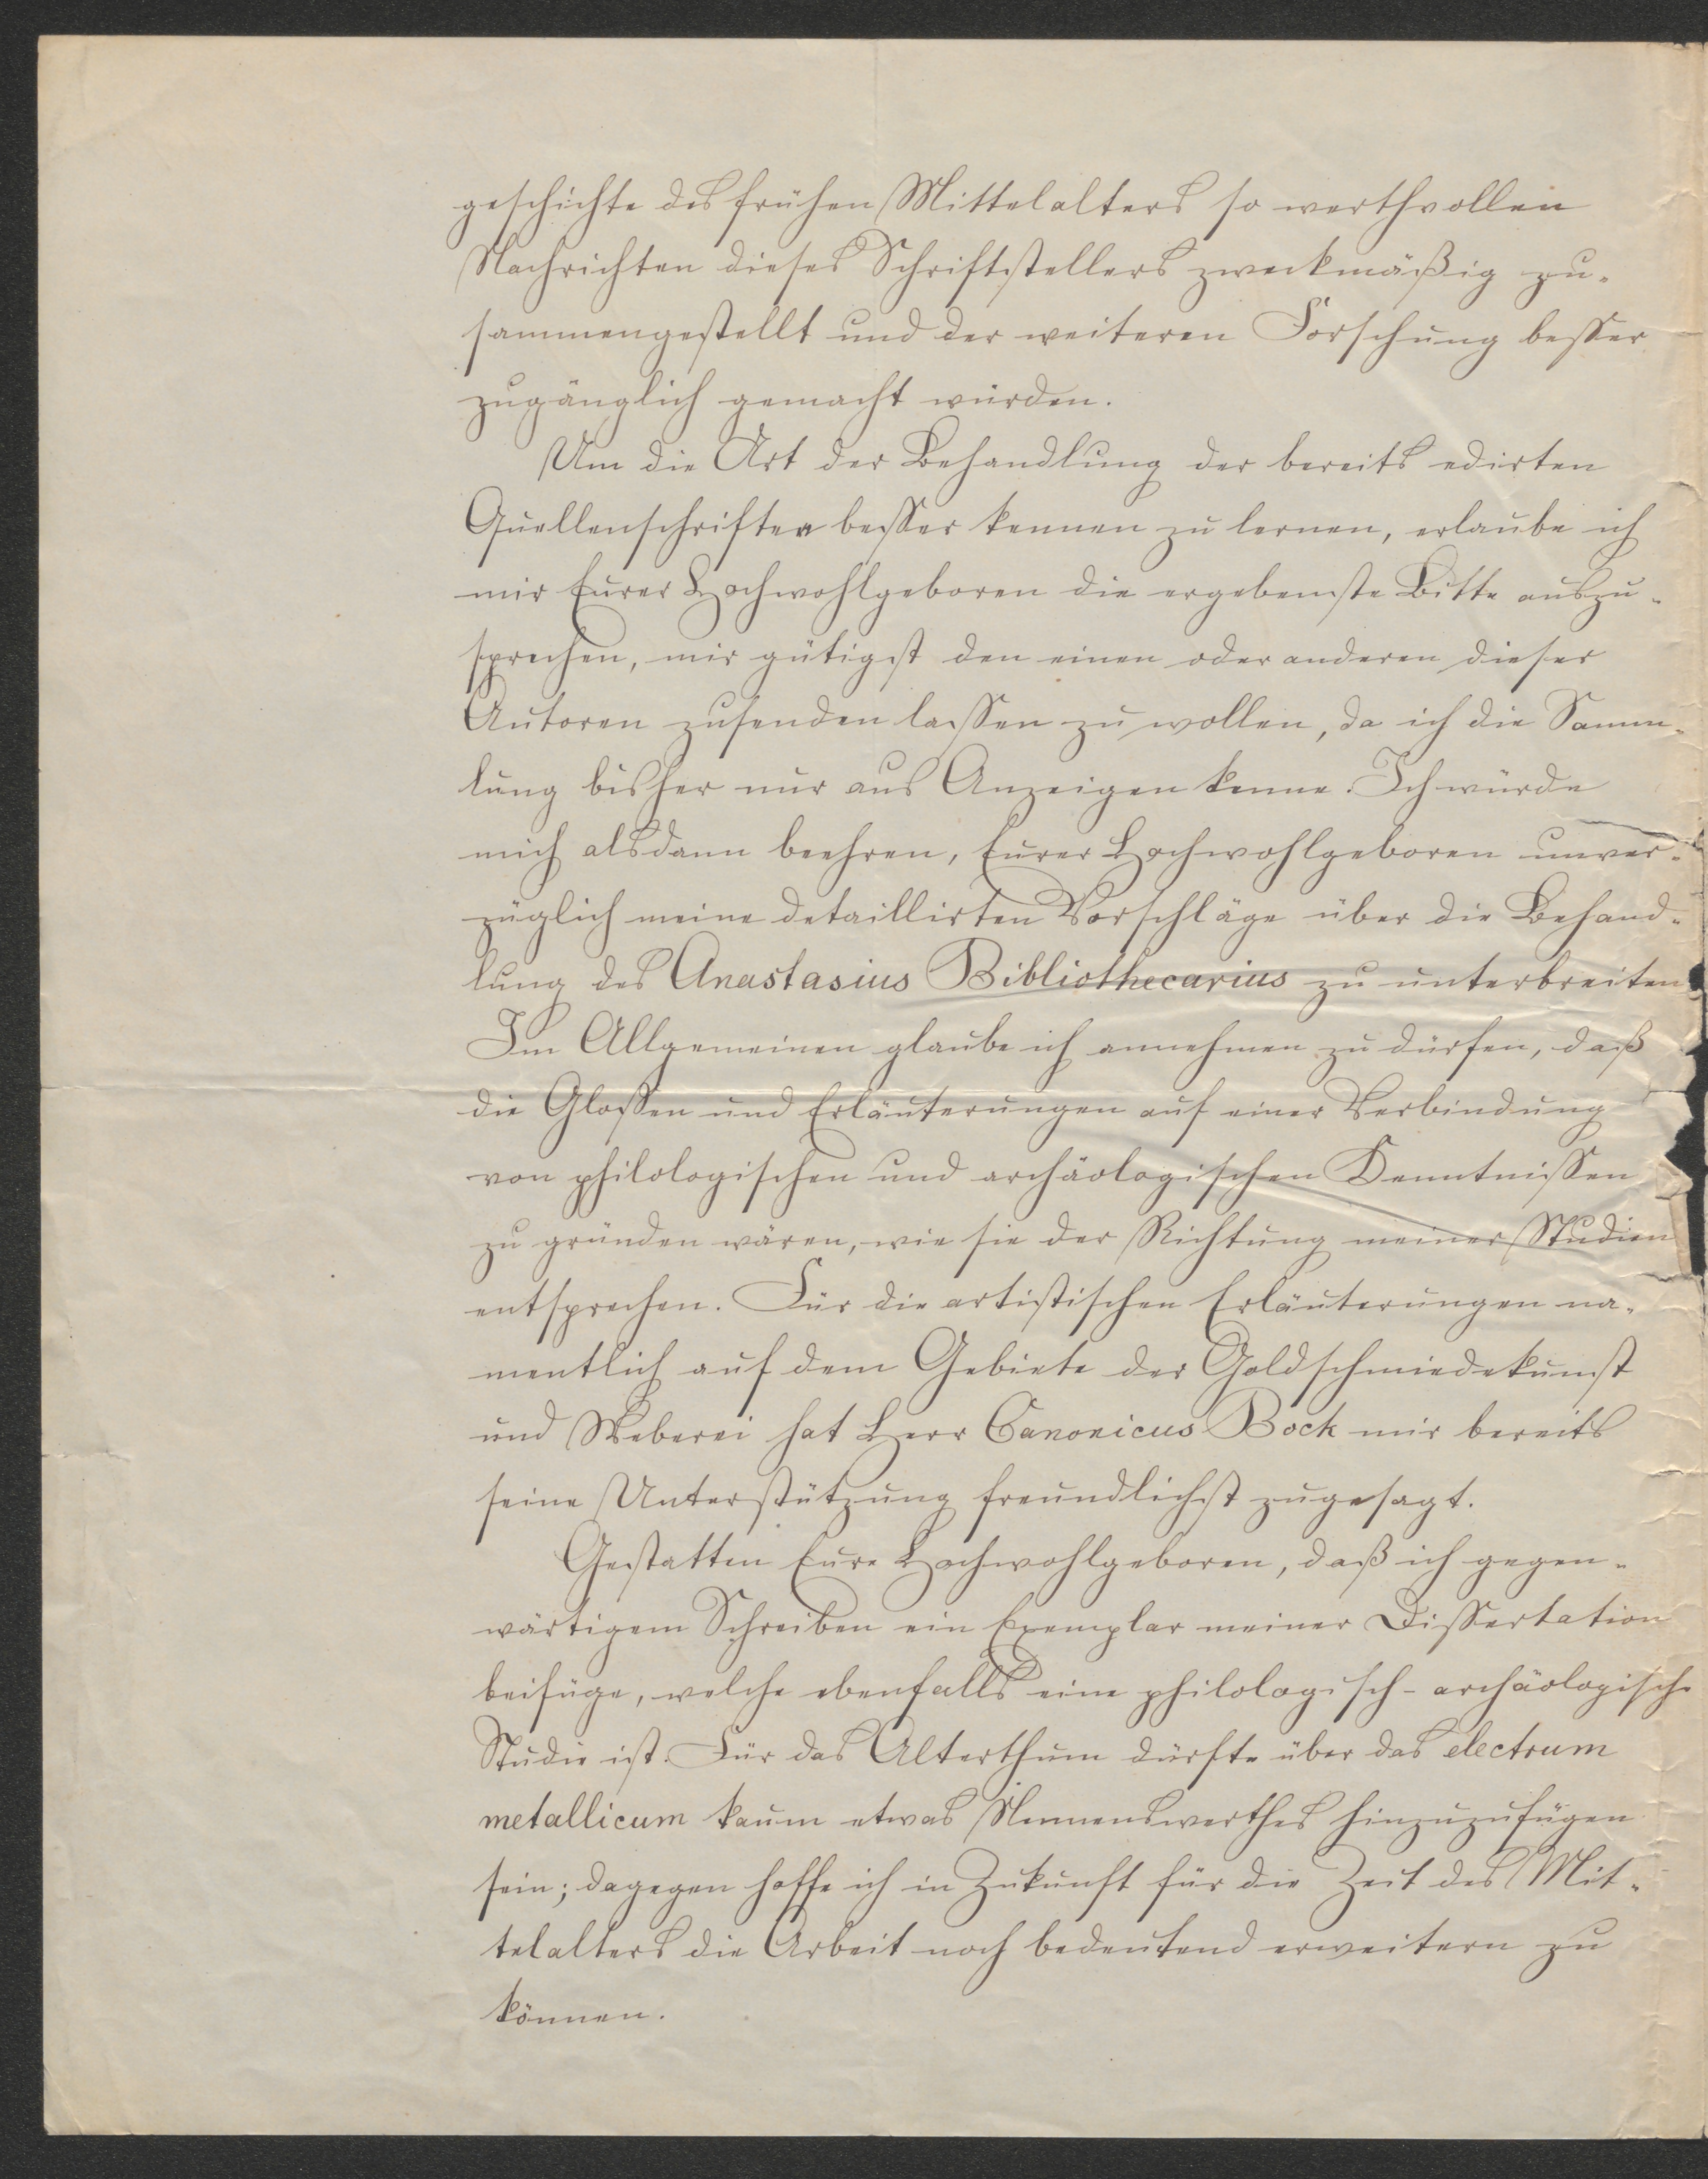 geschichte des frühen Mittelalters so werthvollen
Nachrichten dieses Schriftstellers zweckmäßig zu-
sammengestellt und der weiteren Forschung besser
zugänglich gemacht würden.
Um die Art der Behandlung der bereits edirten
Quellenschriften besser kennen zu lernen, erlaube ich
mir Eurer Hochwohlgeboren die ergebenste Bitte auszu-
sprechen, mir gütigst den einen oder anderen dieser
Autoren zusenden lassen zu wollen, da ich die Samm-
lung bisher nur aus Anzeigen kenne. Ich würde
mich alsdann beehren, Eurer Hochwohlgeboren unver-
züglich meine detaillirten Vorschläge über die Behand-
lung des Anastasius Bibliothecarius zu unterbreiten
Im Allgemeinen glaube ich annehmen zu dürfen, daß
die Glossen und Erläuterungen auf einer Verbindung
von philologischen und archäologischen Kenntnissen
zu gründen wären, wie sie der Richtung meiner Studien
entsprechen. Für die artistischen Erläuterungen na-
mentlich auf dem Gebiete der Goldschmiedekunst
und Weberei hat Herr Canonicus Bock mir bereits
seine Unterstützung freundlichst zugesagt.
Gestatten Eure Hochwohlgeboren, daß ich gegen-
wärtigem Schreiben ein Exemplar meiner Dissertation
beifüge, welche ebenfalls eine philologisch-archäologische
Studie ist. Für das Alterthum dürfte über das electrum
metallicum kaum etwas Nennenswerthes hinzuzufügen
sein; dagegen hoffe ich in Zukunft für die Zeit des Mit-
telalters die Arbeit noch bedeutend erweitern zu
können.